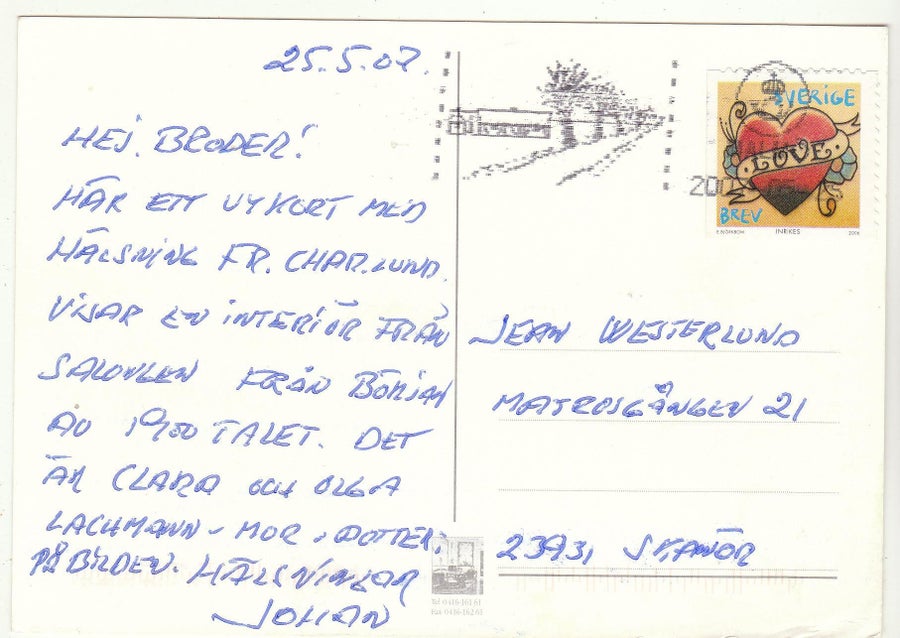 25.5.07.
HEJ. BRODER!
HÄR ETT VYKORT MED
HÄLSNING FR. CHAR.LUND.
VISAR EN INTERIÖR FRÅN
SALONGEN FRÅN BÖRJAN
AV 1900 TALET. DET
ÄR CLARA OCH OLGA
LACHMANN - MOR, DOTTER,
PÅ BILDEN. HÄLSNINGAR
JOHAN
SVERIGE
LOVE
BREV
INRIKES
2006
JEAN WESTERLUND
MATROSGÅNGEN 21
23931 SKANÖR
Tel 0416-161 61
Fax 0416-162 61